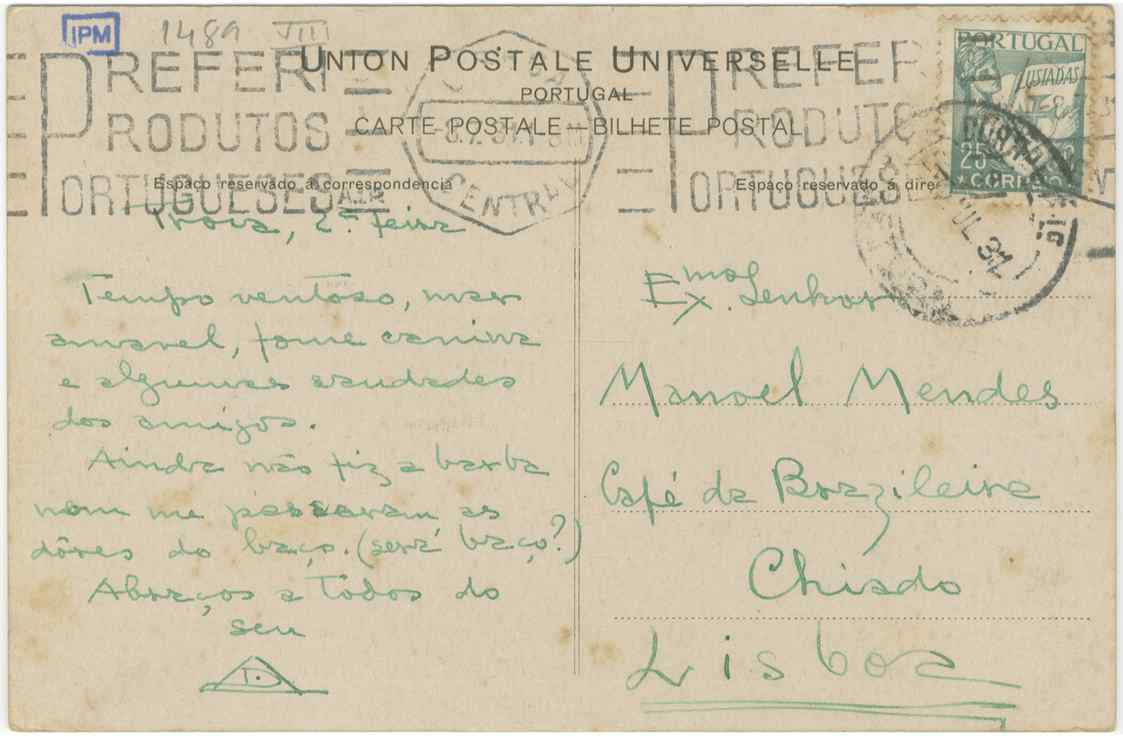 IPM
1489 VIII
UNION POSTALE UNIVERSELLE
PORTUGAL
CARTE POSTALE — BILHETE POSTAL
PREFERI
PRODUTOS
PORTUGUESES
CENTRAL
PREFERI
PRODUTOS
PORTUGUESES
PORTUGAL
LUSIADAS
25
CORREIO
JUL 31
Espaço reservado á correspondencia
Espaço reservado á dire
Troia, 2ª feira
Tempo ventoso, mar
amavel, fome canina
e algumas saudades
dos amigos.
Ainda não fiz a barba
nem me passaram as
dôres do baço. (será baço?)
Abraços a Todos do
seu
D.
Exmo Senhor
Manoel Mendes
Café da Brazileira
Chiado
Lisboa